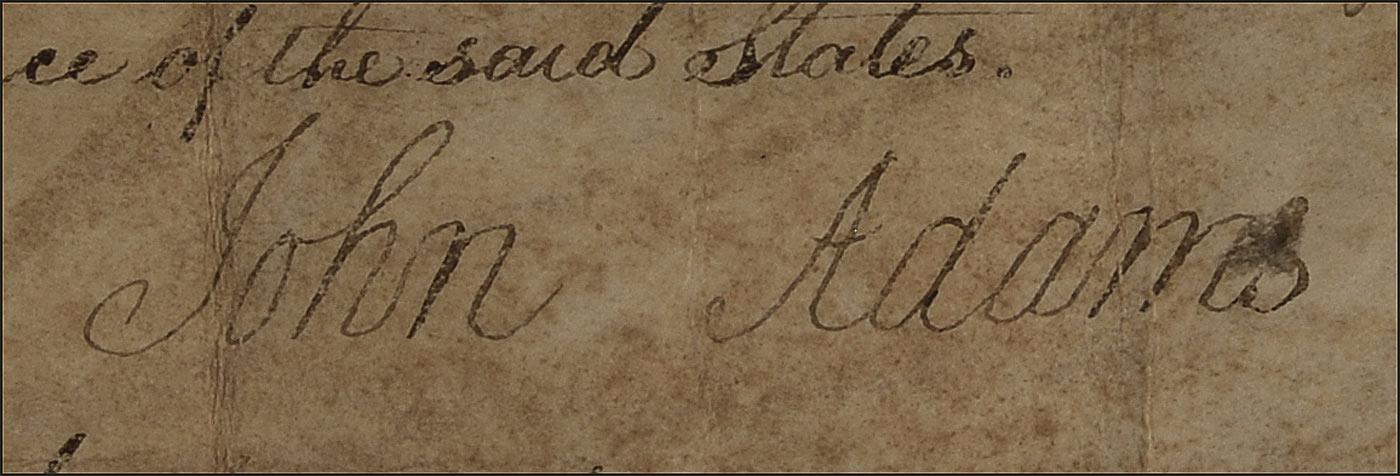 ce of the said States.
John Adams